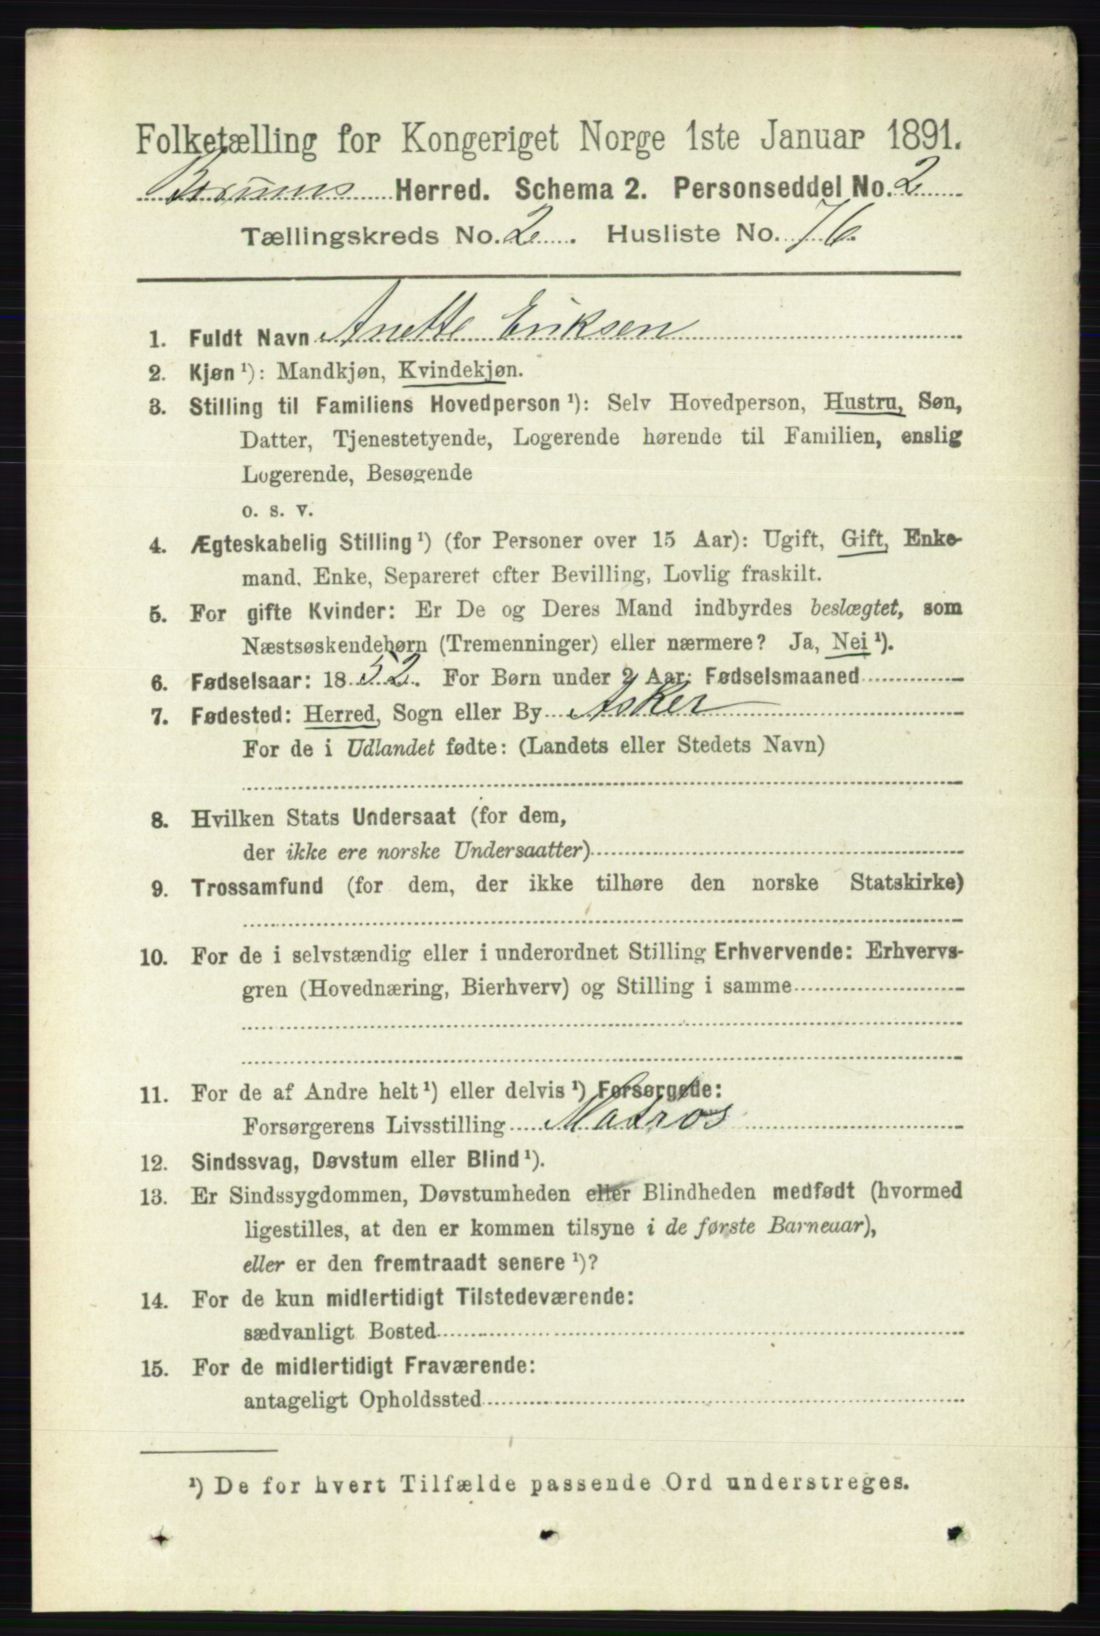 Folketælling for Kongeriget Norge 1ste Januar 1891.
Bærums Herred. Schema 2. Personseddel No. 2
Tællingskreds No. 2. Husliste No. 76.
1. Fuldt Navn Anette Eriksen
2. Kjøn ¹): Mandkjøn, Kvindekjøn.
3. Stilling til Familiens Hovedperson ¹): Selv Hovedperson, Hustru, Søn,
Datter, Tjenestetyende, Logerende hørende til Familien, enslig
Logerende, Besøgende
o. s. v.
4. Ægteskabelig Stilling ¹) (for Personer over 15 Aar): Ugift, Gift, Enke-
mand, Enke, Separeret efter Bevilling, Lovlig fraskilt.
5. For gifte Kvinder: Er De og Deres Mand indbyrdes beslægtet, som
Næstsøskendebørn (Tremenninger) eller nærmere? Ja, Nei ¹).
6. Fødselsaar: 1852. For Børn under 2 Aar: Fødselsmaaned
7. Fødested: Herred, Sogn eller By Asker
For de i Udlandet fødte: (Landets eller Stedets Navn)
8. Hvilken Stats Undersaat (for dem,
der ikke ere norske Undersaatter)
9. Trossamfund (for dem, der ikke tilhøre den norske Statskirke)
10. For de i selvstændig eller i underordnet Stilling Erhvervende: Erhvervs-
gren (Hovednæring, Bierhverv) og Stilling i samme
11. For de af Andre helt ¹) eller delvis ¹) Forsørgede:
Forsørgerens Livsstilling Matros
12. Sindssvag, Døvstum eller Blind ¹).
13. Er Sindssygdommen, Døvstumheden eller Blindheden medfødt (hvormed
ligestilles, at den er kommen tilsyne i de første Barneaar),
eller er den fremtraadt senere ¹)?
14. For de kun midlertidigt Tilstedeværende:
sædvanligt Bosted
15. For de midlertidigt Fraværende:
antageligt Opholdssted
¹) De for hvert Tilfælde passende Ord understreges.